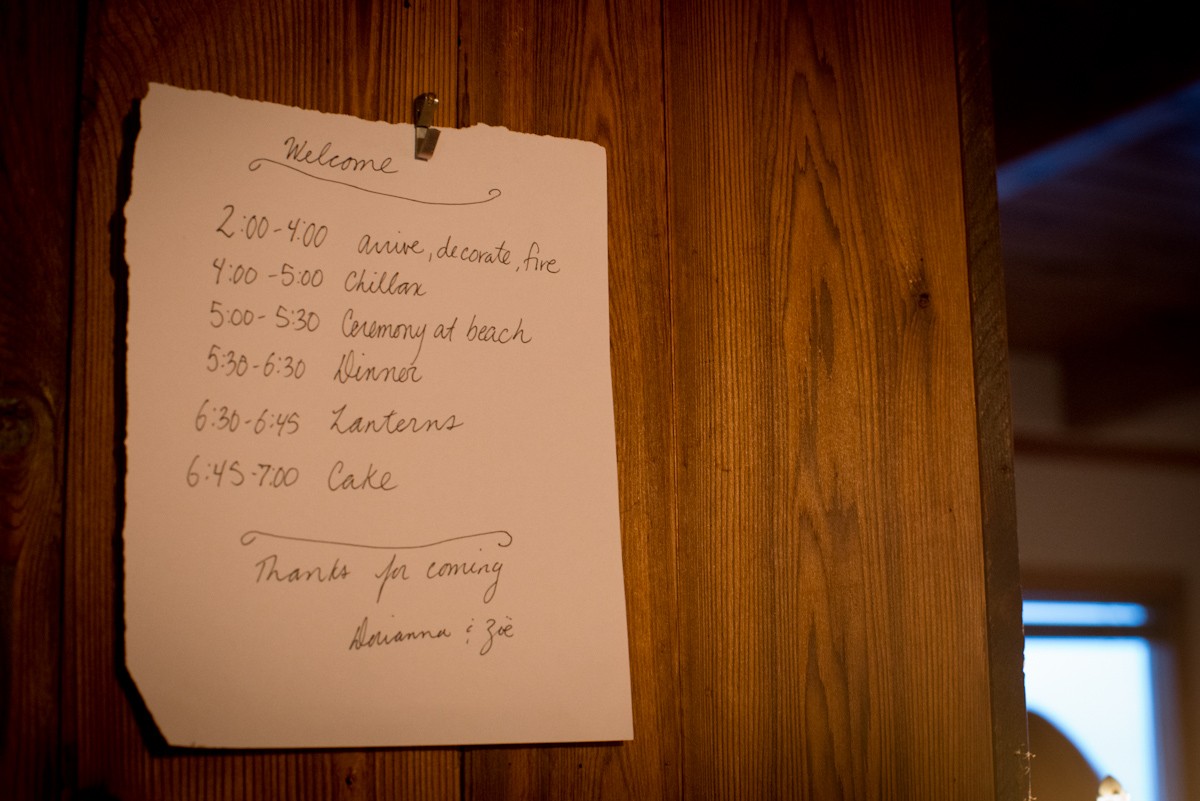 Welcome
2:00-4:00 arrive, decorate, fire
4:00-5:00 Chillax
5:00-5:30 Ceremony at beach
5:30-6:30 Dinner
6:30-6:45 Lanterns
6:45-7:00 Cake
Thanks for coming
Dorianna & Zoë